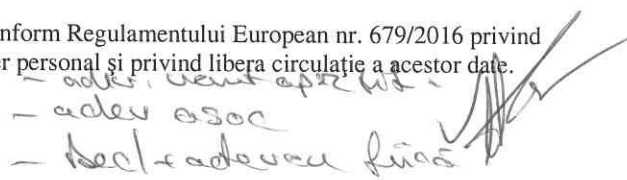 nform Regulamentului European nr. 679/2016 privind
er personal și privind libera circulație a acestor date.
- adev. venit
- adev asoc
- Decl + adev